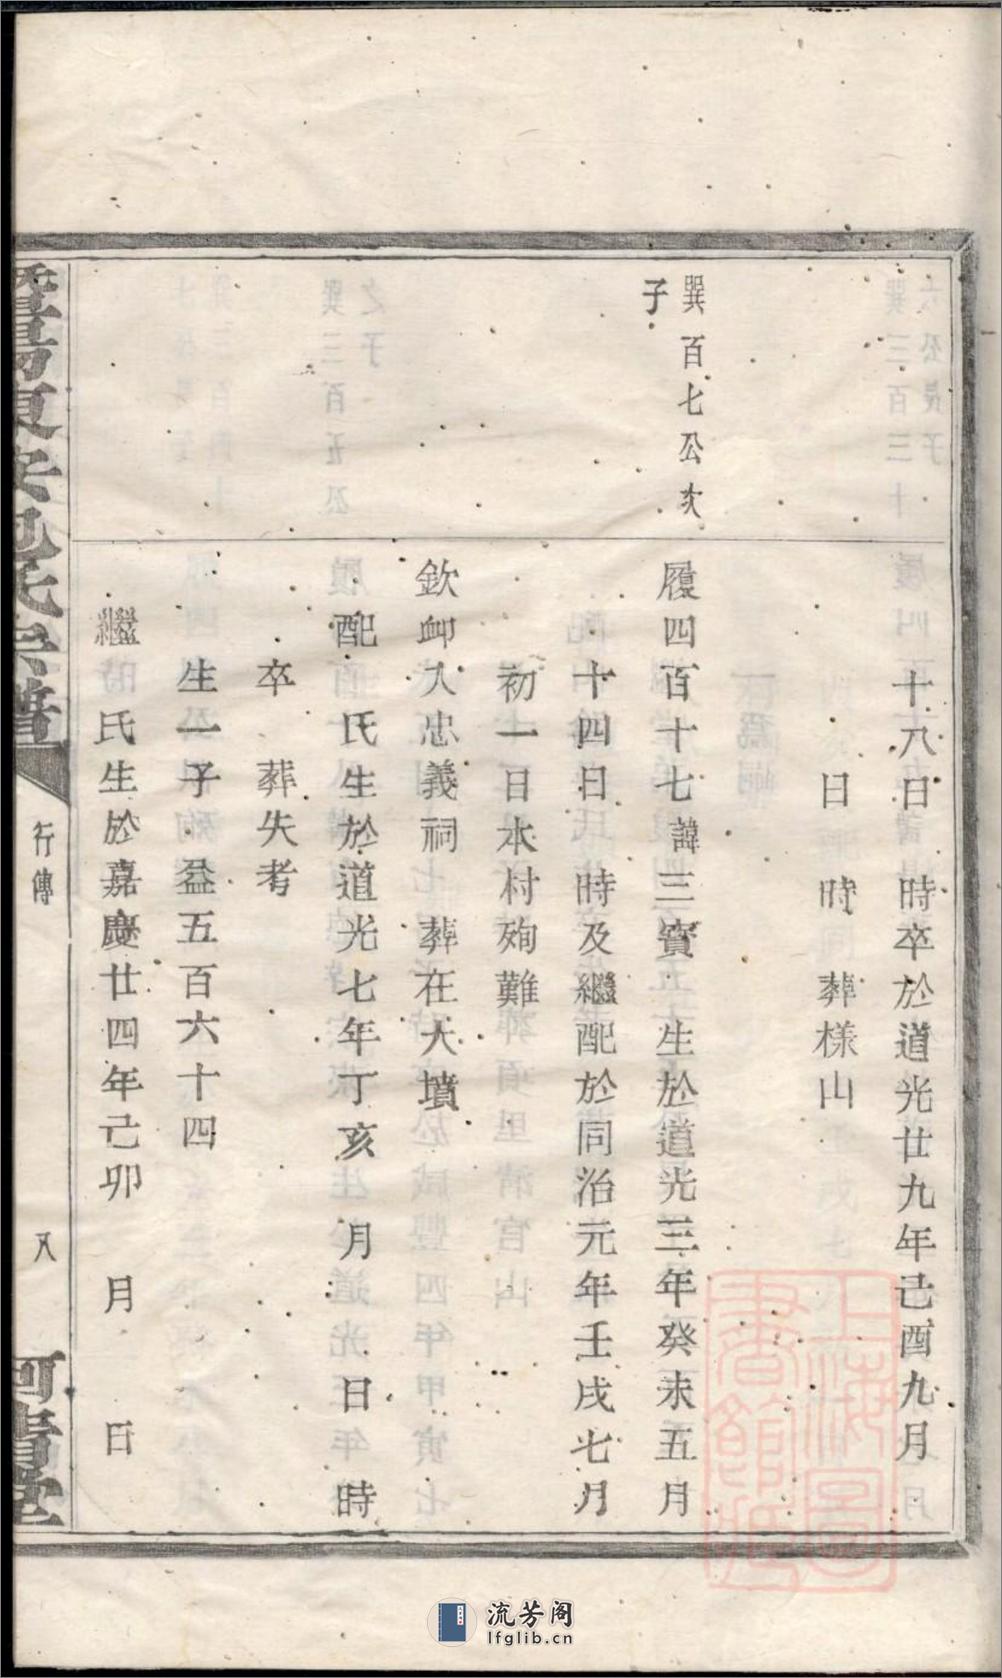 十八日　時卒於道光廿九年己酉九月
日　時　葬樣山
巽百七公次
子
履四百十七諱三寶　生於道光三年癸未五月
十四日　時及繼配於同治元年壬戌七月
初一日本村殉難
欽卹入忠義祠　葬在大墳
配　氏生於道光七年丁亥　月　日　時
卒　葬失考
生一子　益五百六十四
繼　氏生於嘉慶廿四年己卯　月　日
暨陽東安包氏宗譜
行傳
八
上海圖
書館藏
流芳阁
lfglib.cn